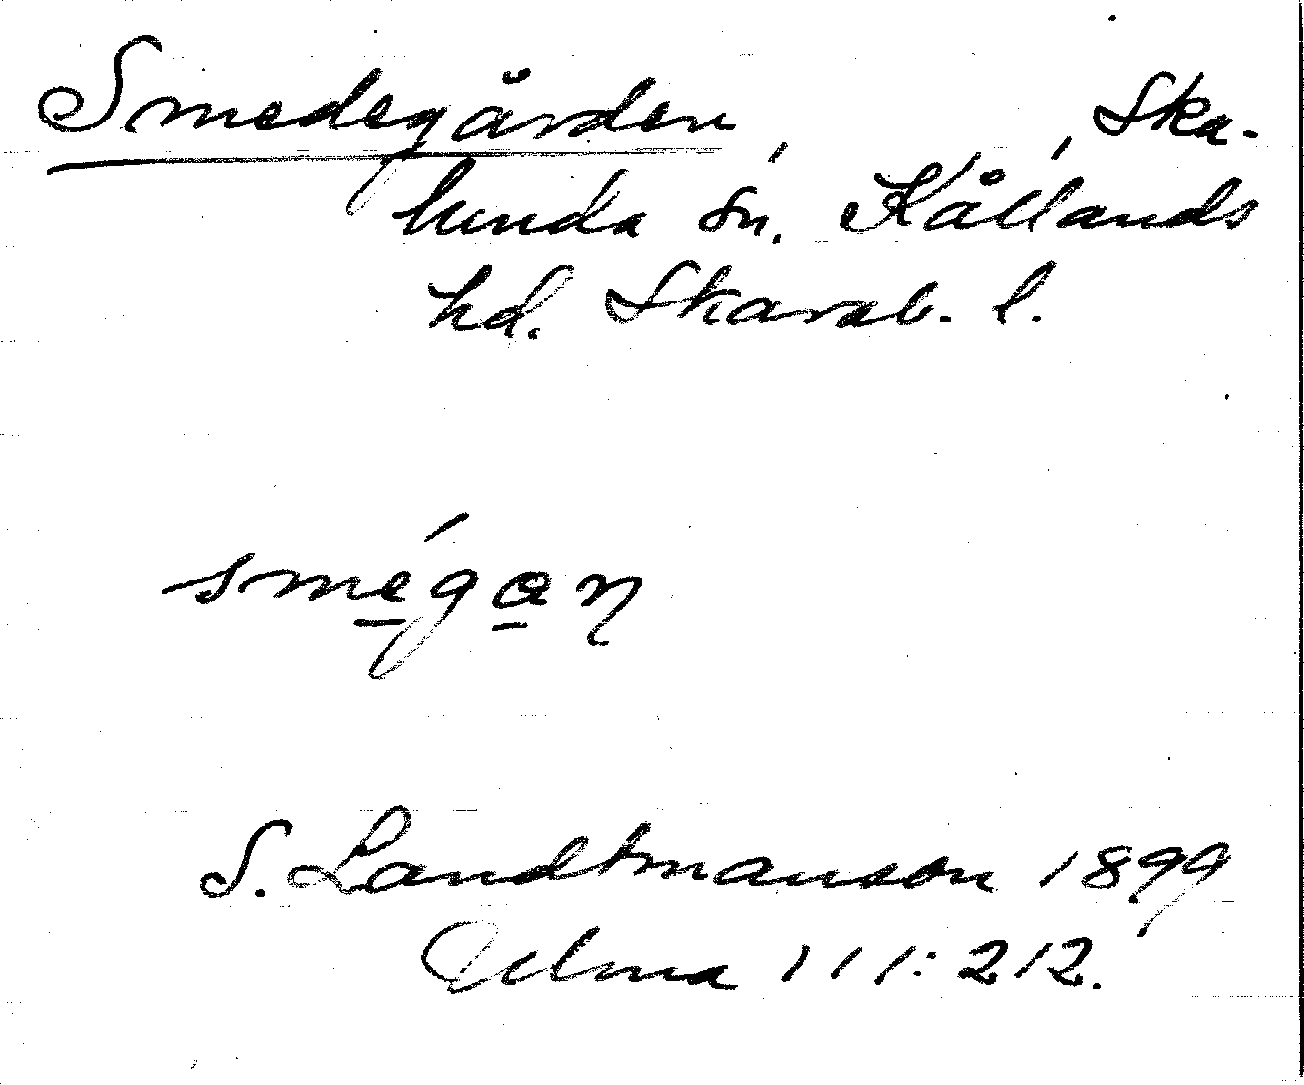 Smedegården, Ska-
lunda sn. Kållands
hd. Skarab. l.
smégan
S. Landtmanson 1899
Ulma 111:212.